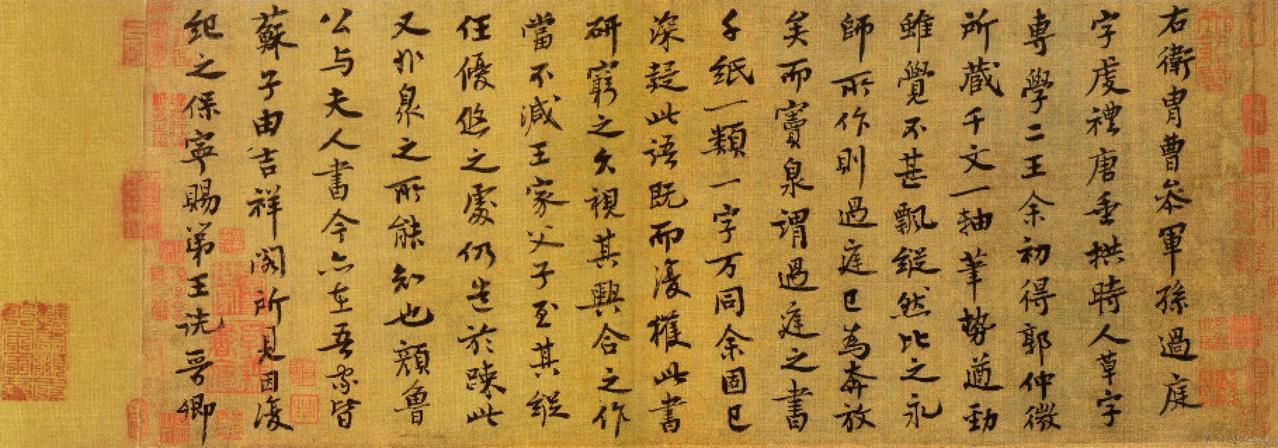 右衛冑曹叅軍孫過庭
字虔禮唐垂拱時人草字
專學二王余初得郭仲微
所藏千文一軸筆勢遒勁
雖覺不甚飄縱然比之永
師所作則過庭已為奔放
矣而竇泉謂過庭之書
千紙一類一字万同余固已
深疑此語既而復獲此書
研窮之久視其興合之作
當不減王家父子至其縱
任優悠之處仍造於疎此
又非泉之所能知也顏魯
公与夫人書今亦在吾家皆
蘇子由吉祥閣所見因復
紀之保寧賜第王詵晉卿